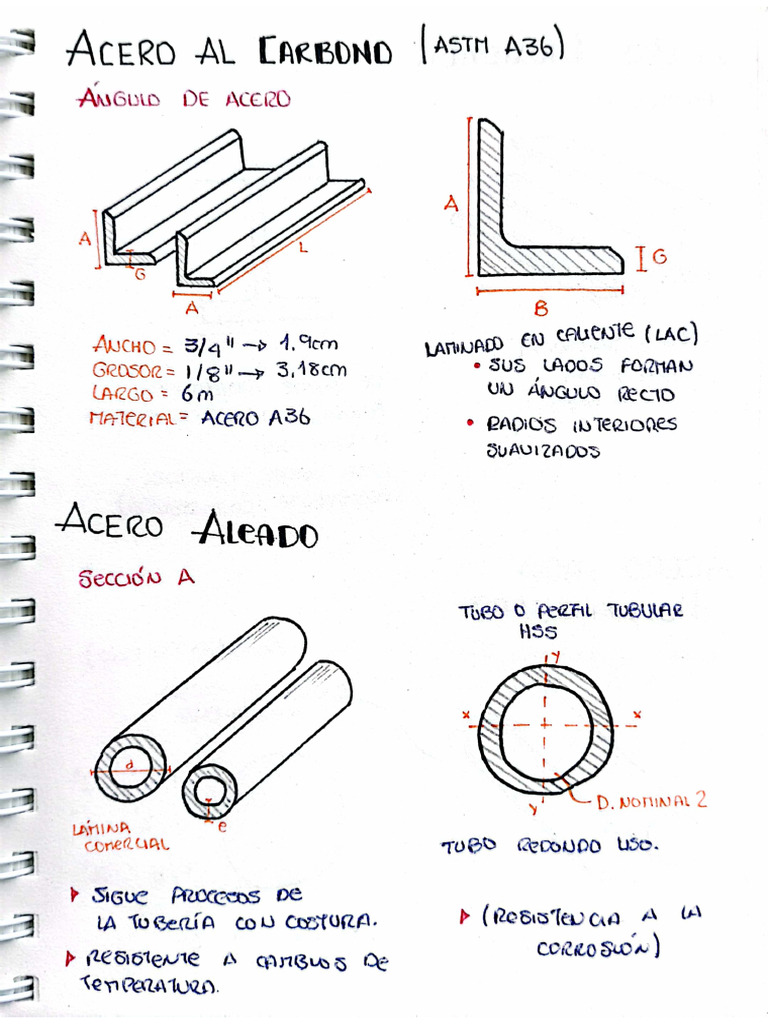 ACERO AL CARBONO (ASTM A36)
ÁNGULO DE ACERO
A
G
A
L
A
G
B
ANCHO = 3/4" → 1,9cm
GROSOR = 1/8" → 3,18cm
LARGO = 6m
MATERIAL = ACERO A36
LAMINADO EN CALIENTE (LAC)
• SUS LADOS FORMAN
UN ÁNGULO RECTO
• RADIOS INTERIORES
SUAVIZADOS
ACERO ALEADO
SECCIÓN A
d
e
LÁMINA
COMERCIAL
TUBO O PERFIL TUBULAR
HSS
y
x x
y
D. NOMINAL 2
TUBO REDONDO LISO.
SIGUE PROCESOS DE
LA TUBERÍA CON COSTURA.
RESISTENTE A CAMBIOS DE
TEMPERATURA.
(RESISTENCIA A LA
CORROSIÓN)